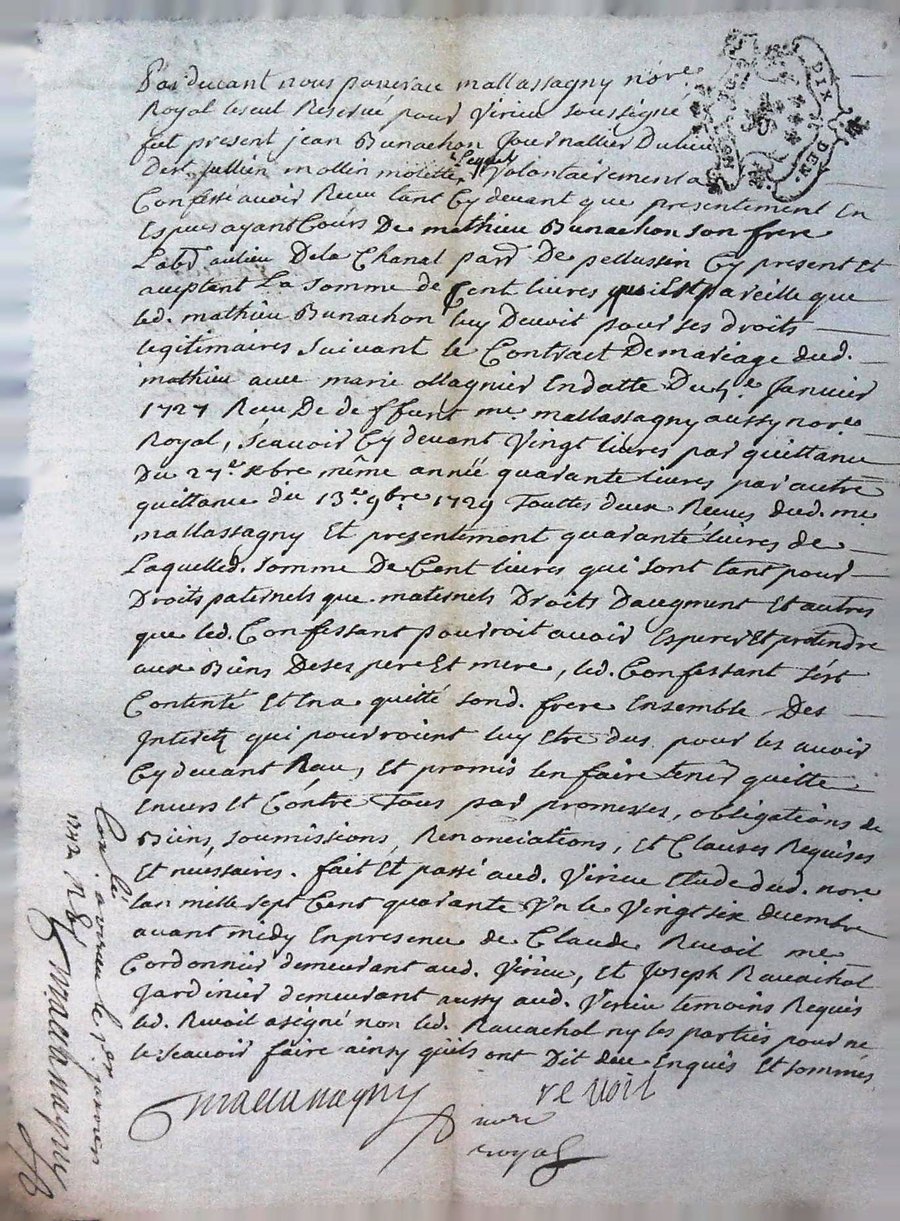 Pardevant nous mallassagny no.re
Royal le seul Reservé pour Virieu soussigné
fut present jean Bunachon Journallier Du lieu
De st jullien mollin molette, Lequel Volontairement a
Confessé avoir Receu tant Cy devant que presentement En
Especes ayant Cours De mathieu Bunachon son frere
Labr au lieu De la Chanal parr De pellussin Cy present et
acceptant La somme de Cent livres qui Est pareille que
led. mathieu Bunachon luy Devoit pour ses droits
legitimaires suivant le Contract De mariage dud.
mathieu avec marie ollagnier En datte Du Janvier
1727 Receu De deffunt me. mallassagny aussy nore
Royal, scavoir Cy devant Vingt livres par quittance
Du 27e xbre même année quarante livres par autre
quittance du 13e 9bre 1729 Touttes deux Receues dud. me
mallassagny Et presentement quarante livres de
Laquelled. somme De Cent livres qui sont tant pour
Droits paternels que maternels Droits Daugment Et autres
que led. Confessant pourroit avoir Esperer Et pretendre
aux Biens De ses pere Et mere, led. Confessant s'est
Contenté Et En a quitté sond. frere Ensemble Des
Interets qui pourroient luy Etre dus pour les avoir
Cy devant Receu, Et promis l'en faire tenir quitte
Envers Et Contre Tous par promesses, obligations de
Biens, soumissions, Renonciations, et Clauses Requises
Et necessaires. fait Et passé aud. Virieu Etude dud. nore
lan mille sept Cent quarante Un le Vingt six decembre
avant midy En presence de Claude Revoil me
Cordonnier demeurant aud. Virieu, Et Joseph Ravachol
Jardinier demeurant aussy aud. Virieu temoins Requis
led. Revoil a signé non led. Ravachol ny les parties pour ne
le scavoir faire ainsy qu'ils ont Dit de ce Enquis Et sommés
mallassagny
revoil
nore
royal
Con.lé a virieu le janvier
1742 R
mallassagny
DIX DEN.